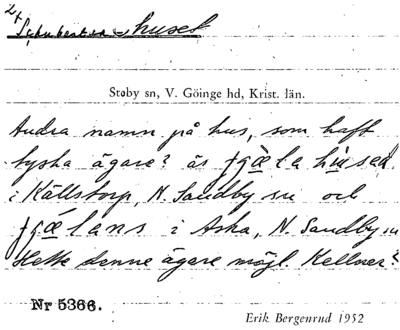 Schubertska huset
Stoby sn, V. Göinge hd, Krist. län.
Andra namn på hus, som haft
tyska ägare? äs fgæla húsed
i Källstorp, N. Sandby sn och
fgǽlans i Aska, N. Sandby sn
Hette denne ägare möjl. Kellner?
Nr 5366.
Erik Bergenrud 1952